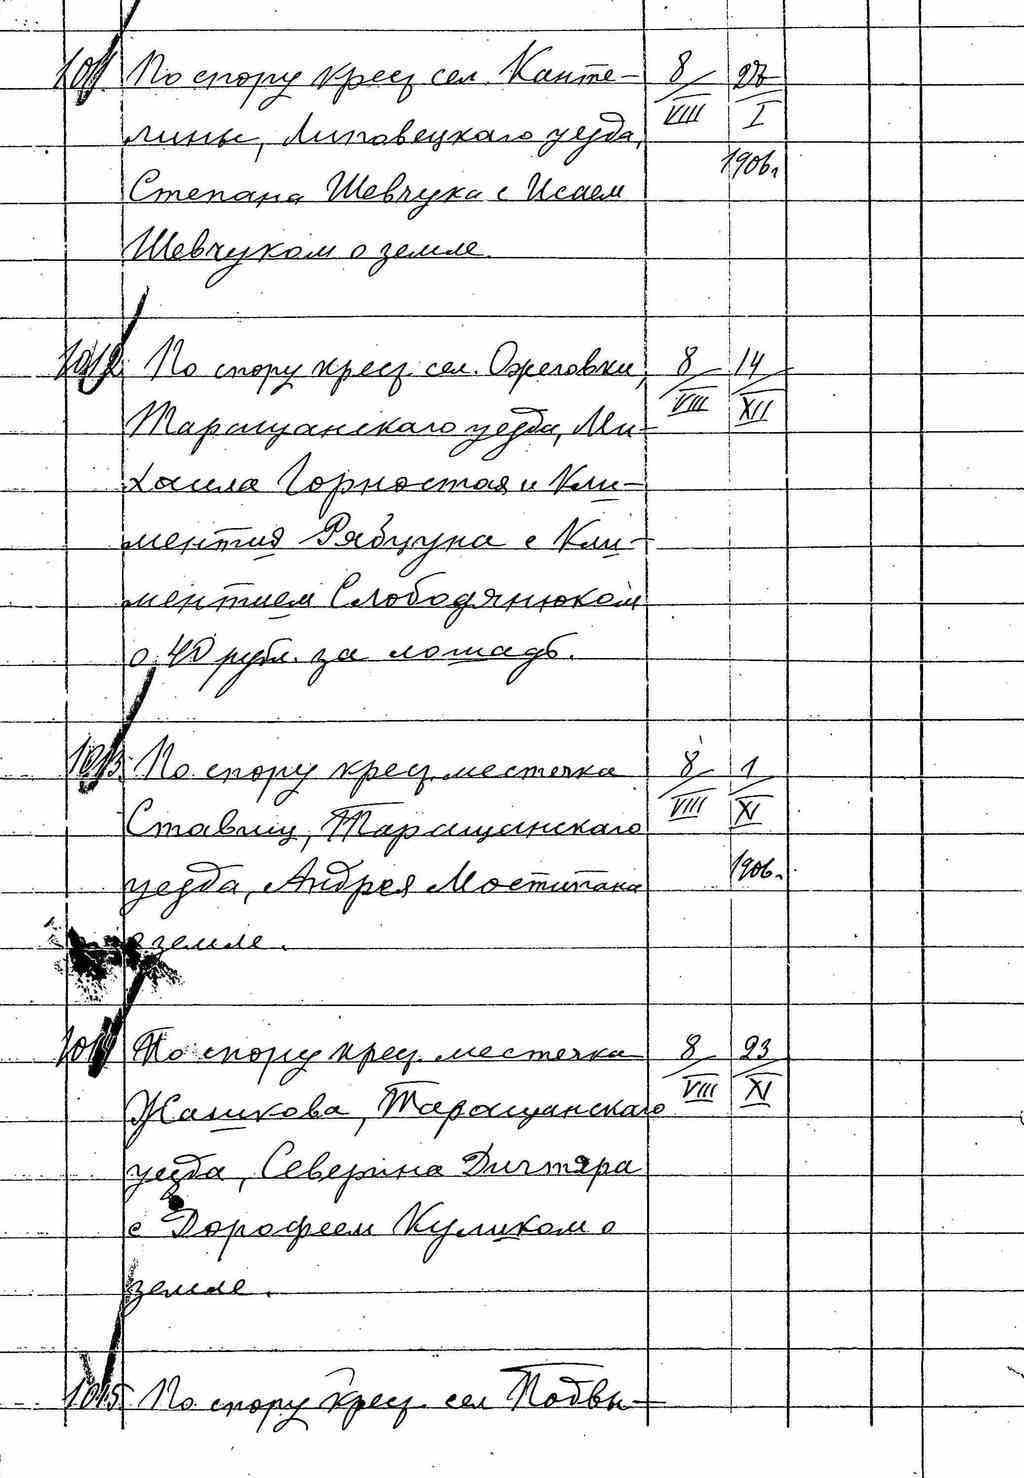 1011. По спору крест. сел. Канте- 8/VIII 27/I
лины, Липовецкаго уезда, 1906 г.
Степана Шевчука с Исаем
Шевчуком о земле.
1012. По спору крест. сел. Ожеговки, 8/VIII 14/XII
Таращанскаго уезда, Ми-
хаила Горностая и Кли-
ментия Рябцуна с Кли-
ментием Слободянюком
о 40 рубл. за лошадь.
1013. По спору крест. местечка 8/VIII 1/XI
Ставищ, Таращанскаго 1906 г.
уезда, Андрея Мостипана
о земле.
1014. По спору крест. местечка 8/VIII 23/XI
Жашкова, Таращанскаго
уезда, Северина Дигтяра
с Дорофеем Куликом о
земле.
1015. По спору крест. сел. Подвы-